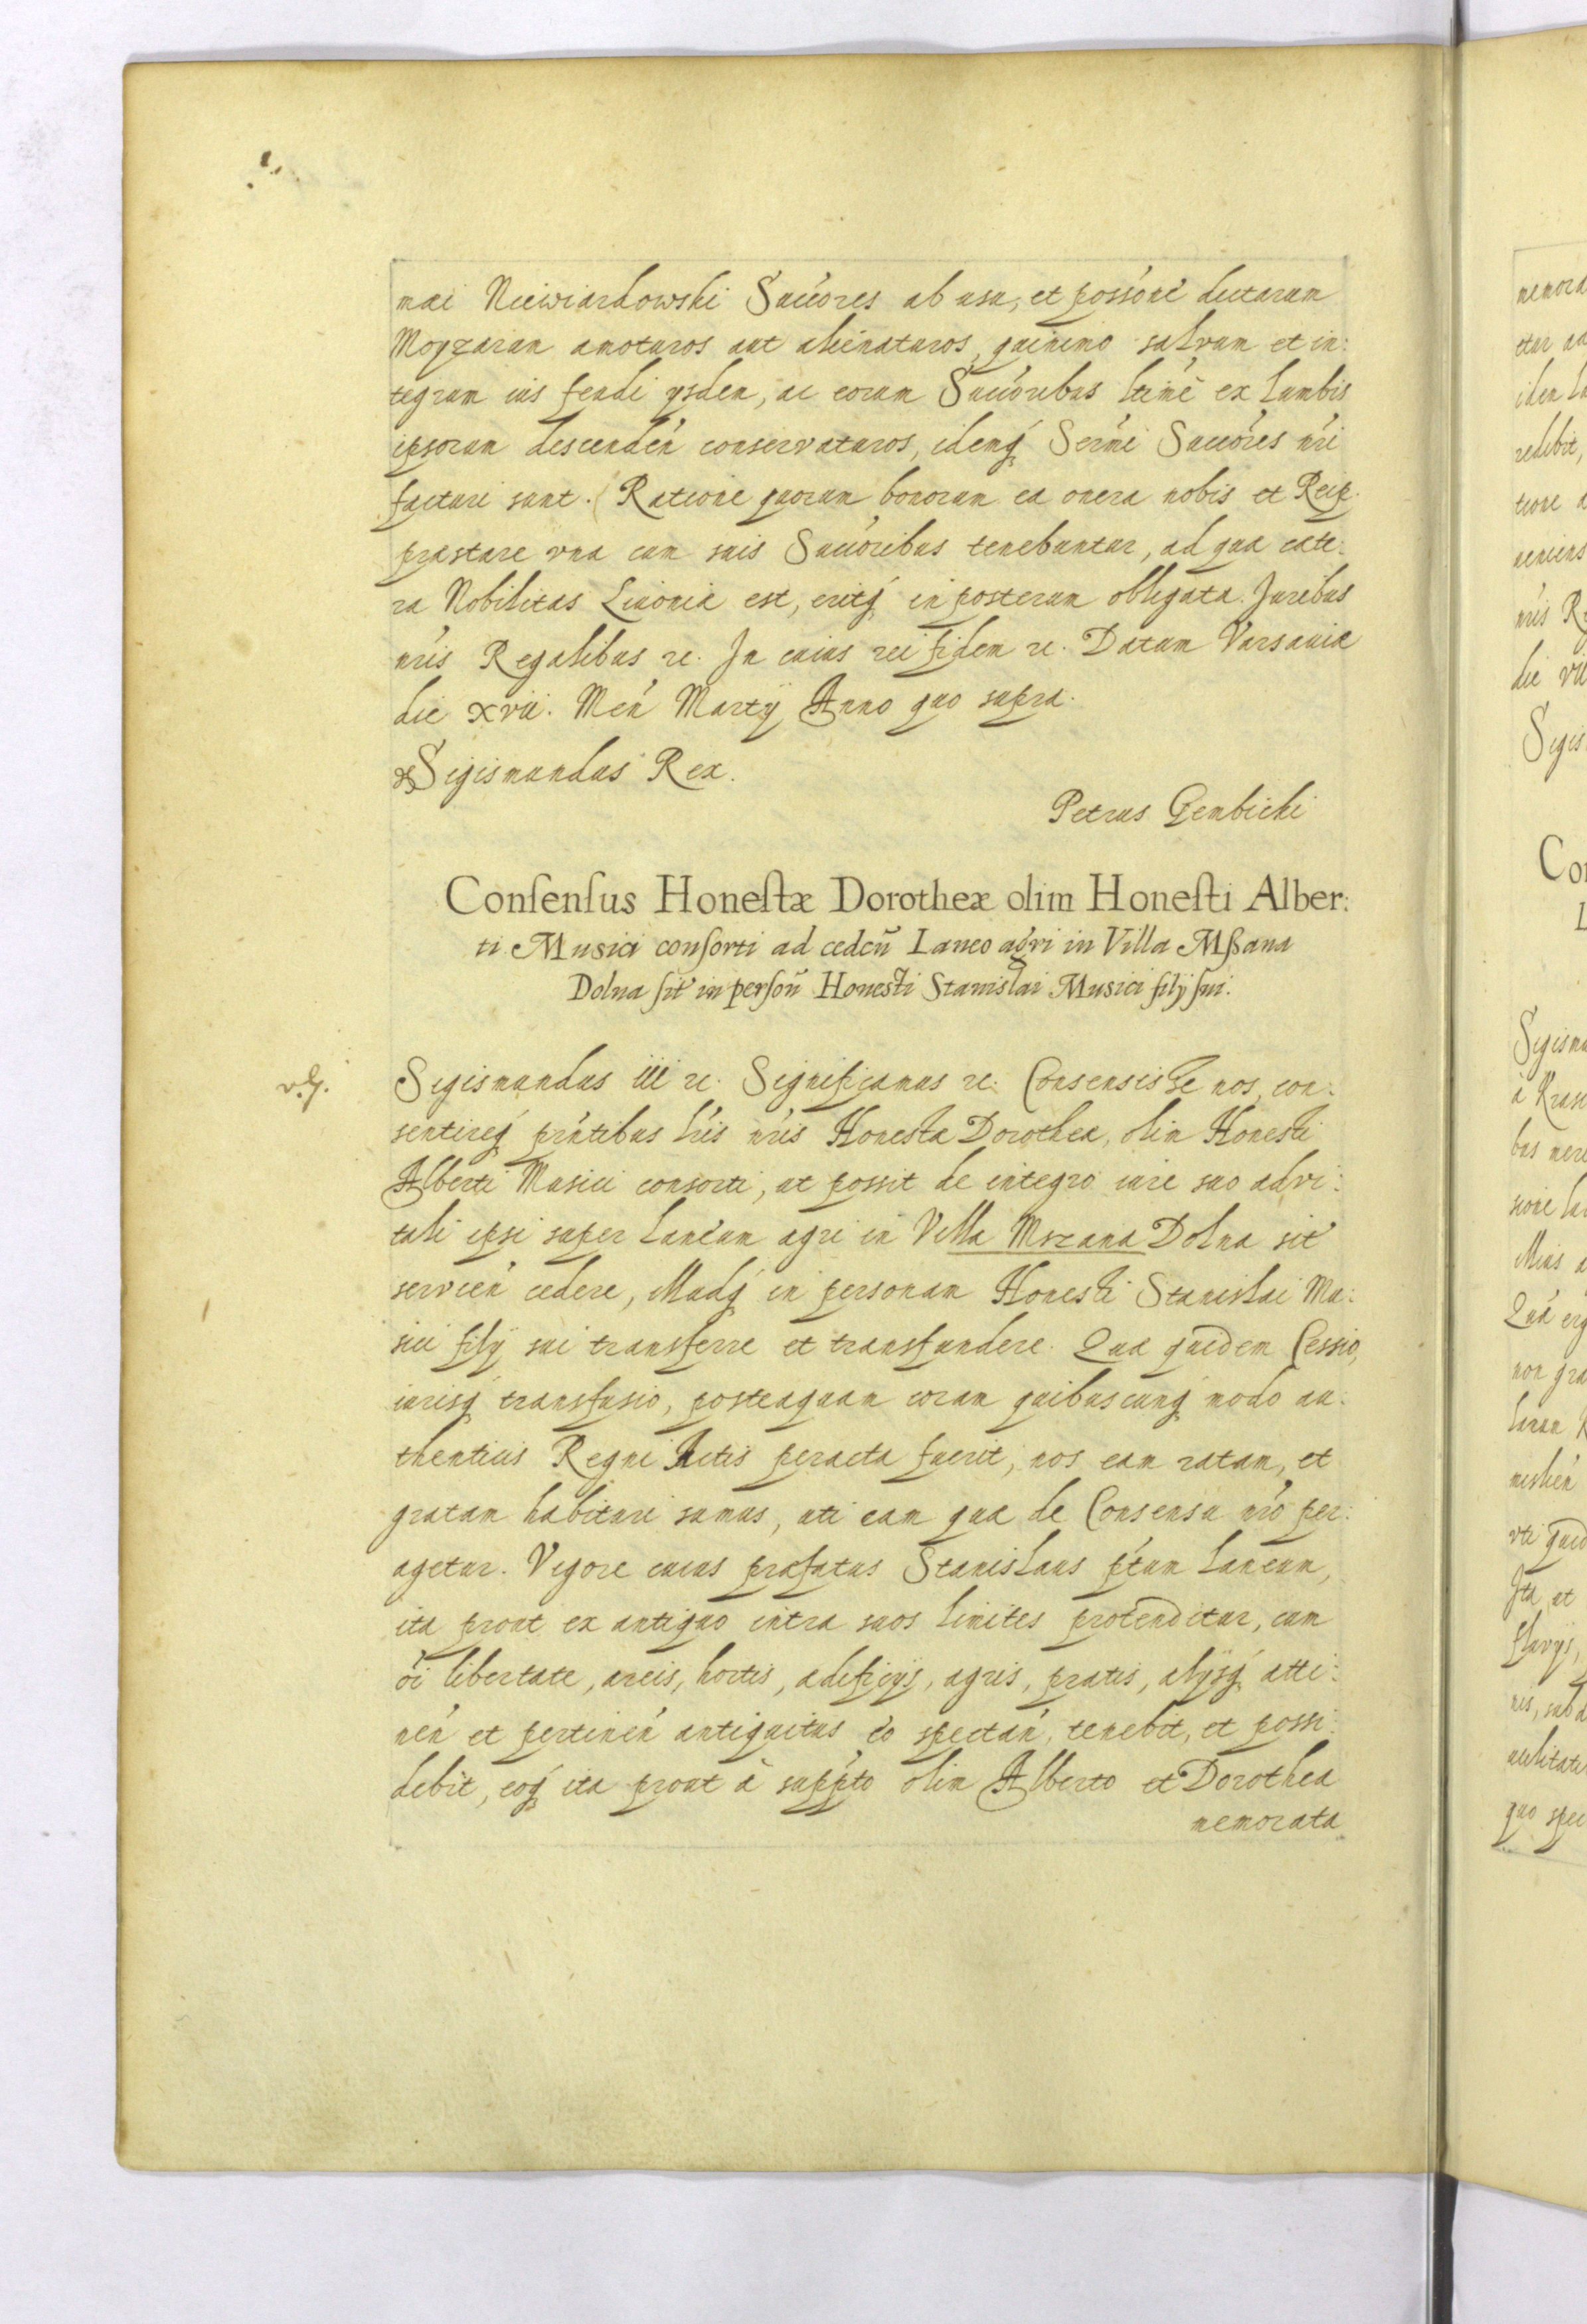 mai Niewiardowski Succ̃ores ab usu, et possone dictarum
Moyzarum amoturos aut alienaturos, quinimo salvum et in:
tegrum ius feudi ysdem, ac eorum Succoribus ltimè ex lumbis
ipsorum descenden conservaturos, idemq́ Sermi Succores nri
facturi sunt. Ratione quorum bonorum ea onera nobis et Reip.
præstare vna cum suis Succoribus tenebuntur, ad quæ cæte:
ra Nobilitas Liuoniæ est, eritq́ in posterum obligata. Juribus
nris Regalibus rc. In cuius rei fidem rc. Datum Varsauiæ
die xvii. Men Martij Anno quo supra.
Sigismundus Rex.
Petrus Gembicki
Conſenſus Honeſtæ Dorotheæ olim Honeſti Alber:
ti Musici conſorti ad ceden̄ Laneo agri in Villa Mßana
Dolna ſit̃ in perſon̄ Honesti Stanislai Musici filij ſui.
Sigismundus iii rc. Significamus rc. Consensisse nos, con:
sentireq́ prntibus lris nris Honestæ Dorotheæ, olim Honesti
Alberti Musici consorti, ut possit de integro iure suo advi:
tali ipsi super laneum agri in Villa Mszana Dolna sit
servien cedere, illudq́ in personam Honesti Stanislai Mu:
sici filij sui transferre et transfundere. Quæ quidem Cessio,
iurisq́ transfusio, posteaquam coram quibuscunq́ modo au:
thenticis Regni Actis peracta fuerit, nos eam ratam, et
gratam habituri sumus, uti eam quæ de Consensu nro per:
agetur. Vigore cuius præfatus Stanislaus ptum laneum,
ita prout ex antiquo intra suos limites protenditur, cum
oi libertate, areis, hortis, ædificijs, agris, pratis, alijsq́ atti:
nen et pertinen antiquitus eo spectan, tenebit, et possi:
debit, eoq́ ita prout à suppto olim Alberto et Dorothea
memorata